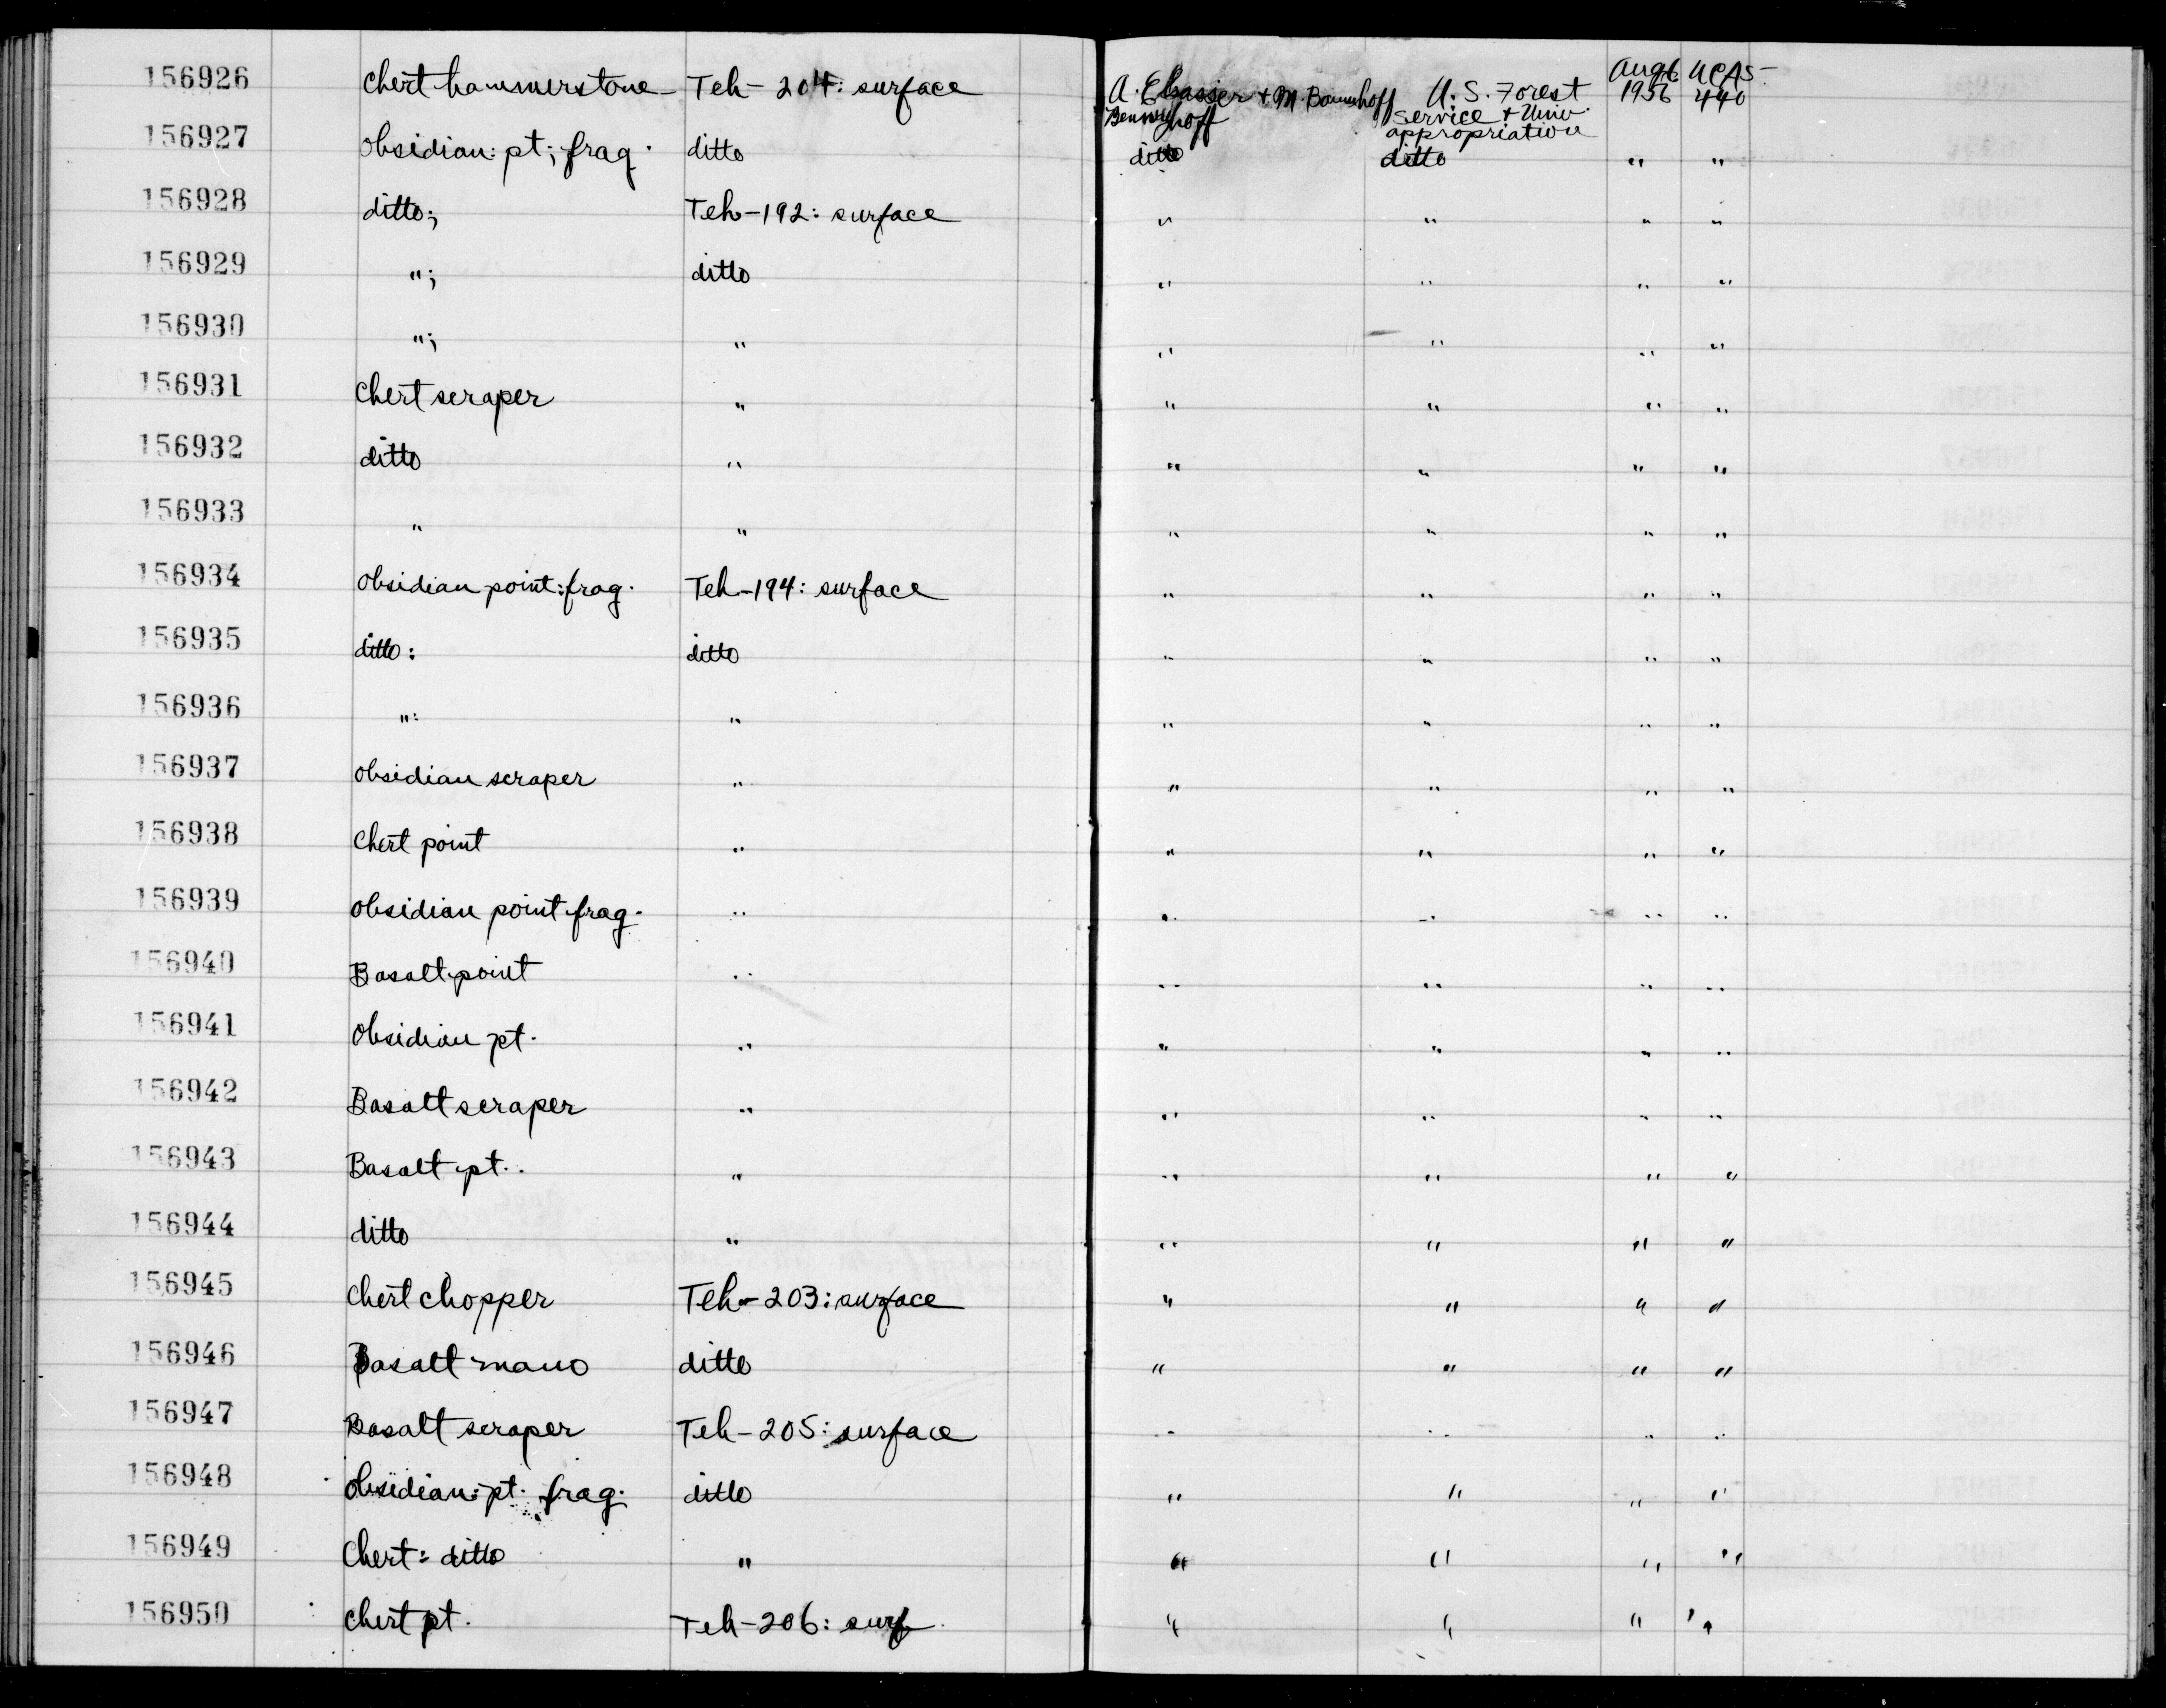 156926 Chert hammerstone Teh-204: surface A. Elsasser + M. Baumhoff U. S. Forest Aug 1956 UCAS-440
Bennyhoff service + Univ. appropriation
156927 Obsidian: pt; frag. ditto ditto ditto " "
156928 ditto; Teh-192: surface " " " "
156929 "; ditto " " " "
156930 "; " " " " "
156931 Chert scraper " " " " "
156932 ditto " " " " "
156933 " " " " " "
156934 Obsidian point: frag. Teh-194: surface " " " "
156935 ditto: ditto " " " "
156936 ": " " " " "
156937 obsidian scraper " " " " "
156938 Chert point " " " " "
156939 obsidian point frag. " " " " "
156940 Basalt point " " " " "
156941 Obsidian pt. " " " " "
156942 Basalt scraper " " " " "
156943 Basalt pt. " " " " "
156944 ditto " " " " "
156945 Chert chopper Teh-203: surface " " " "
156946 Basalt mano ditto " " " "
156947 Basalt scraper Teh-205: surface " " " "
156948 Obsidian: pt. frag. ditto " " " "
156949 Chert: ditto " " " " "
156950 Chert pt. Teh-206: surf " " " "